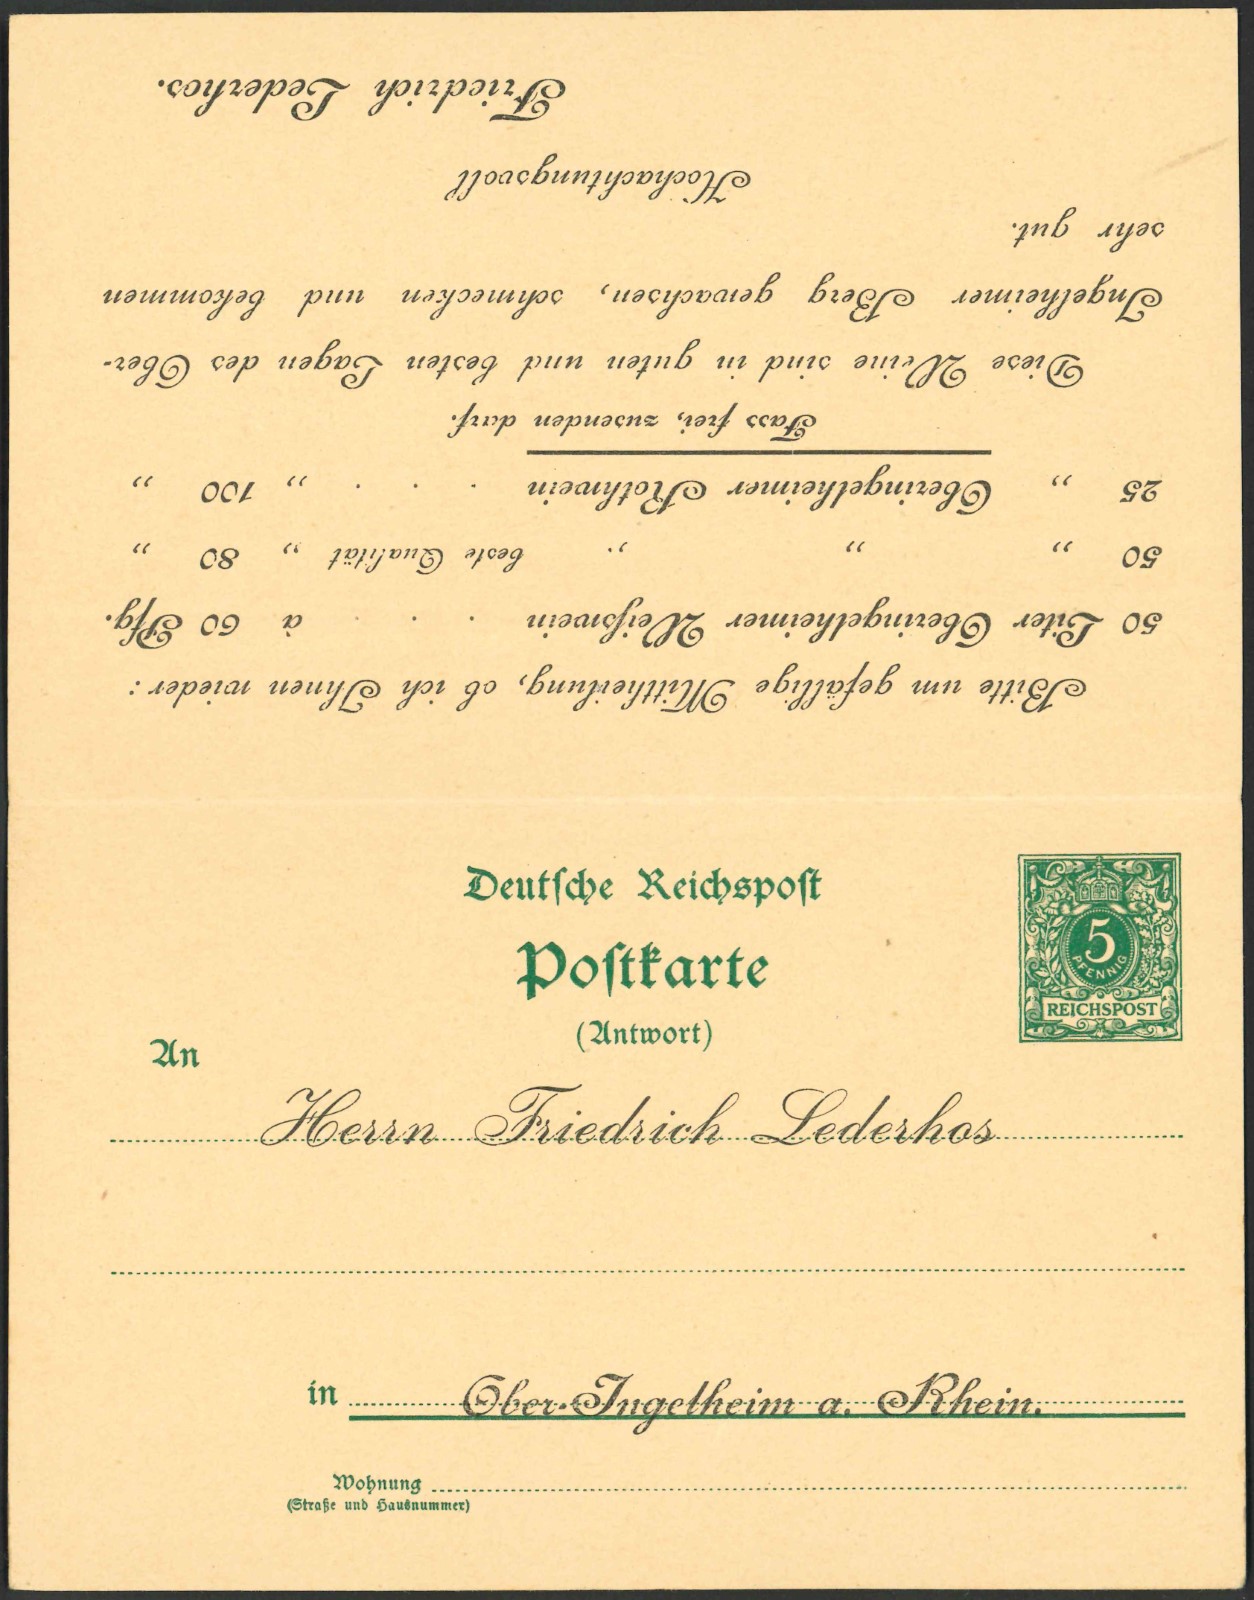 Bitte um gefällige Mittheilung, ob ich Ihnen wieder:
50 Liter Oberingelheimer Weißwein . . . à 60 Pfg.
50 „ „ „ beste Qualität „ 80 „
25 „ Oberingelheimer Rothwein . . . „ 100 „
Fass frei, zusenden darf.
Diese Weine sind in guten und besten Lagen des Ober-
Ingelheimer Berg gewachsen, schmecken und bekommen
sehr gut.
Hochachtungsvoll
Friedrich Lederhos.
Deutsche Reichspost
Postkarte
(Antwort)
5
PFENNIG
REICHSPOST
An
Herrn Friedrich Lederhos
in Ober-Ingelheim a. Rhein.
Wohnung
(Straße und Hausnummer)